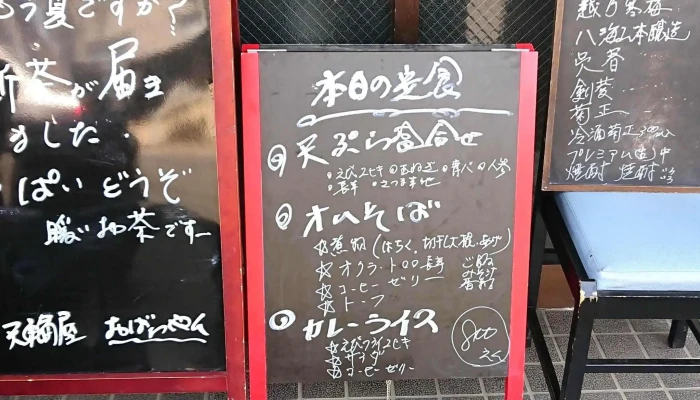 もう夏ですか?
新茶が届き
ました.
ぱい どうぞ
暖い お茶ですー
天鞴屋 おばちゃん
本日の定食
天ぷら盛合せ
・えび2ヒキ ・玉ねぎ ・青バ ・人参
・長芋 ・さつま芋
オムそば
☆煮物(はちく、切干大根、あげ)
☆オクラ・トロロ長芋
☆コーヒーゼリー
☆トーフ
ごはん
みそ汁
香物
カレーライス
☆えびフライ2ヒキ
☆サラダ
☆コーヒーゼリー
800
えん
越乃寒梅
八海山本醸造
呉春
剣菱
菊正
冷酒菊正300ml
プレミアム(生)中
焼酎 焼酎